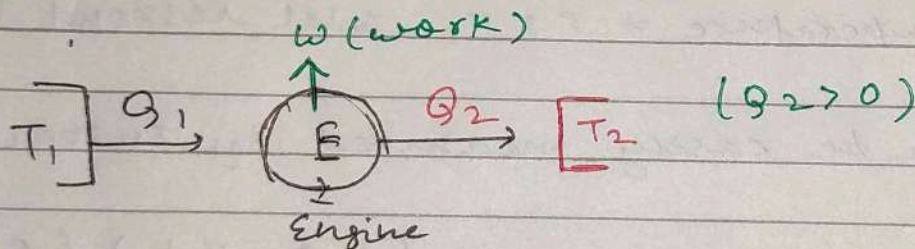 W (work)
T1 Q1 E Q2 T2 (Q2 > 0)
Engine